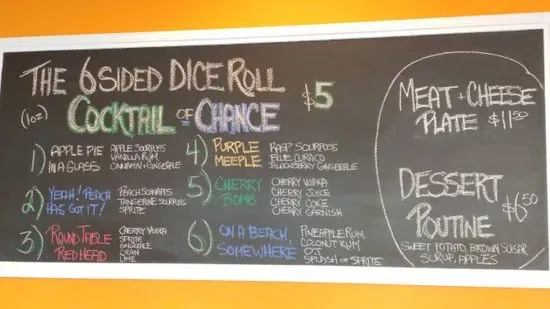 THE 6 SIDED DICE ROLL
(1oz) COCKTAIL OF CHANCE $5
1) APPLE PIE IN A GLASS
APPLE SOURPUSS
VANILLA RUM
CINNAMIN + GINGERALE
2) YEAH! PEACH HAS GOT IT!
PEACH SCHNAPPS
TANGERINE SOURPUSS
SPRITE
3) ROUND TABLE RED HEAD
CHERRY VODKA
SPRITE
GINGERALE
CRAN
LIME
4) PURPLE MEEPLE
RASP SOURPUSS
BLUE CURACO
BLACKBERRY GINGERALE
5) CHERRY BOMB
CHERRY VODKA
CHERRY JUICE
CHERRY COKE
CHERRY GARNISH
6) ON A BEACH, SOMEWHERE
PINEAPPLE RUM
COCONUT RUM
O.J.
SPLASH OF SPRITE
MEAT + CHEESE
PLATE $11.50
DESSERT
POUTINE $6.50
SWEET POTATO, BROWN SUGAR
SURUP, APPLES